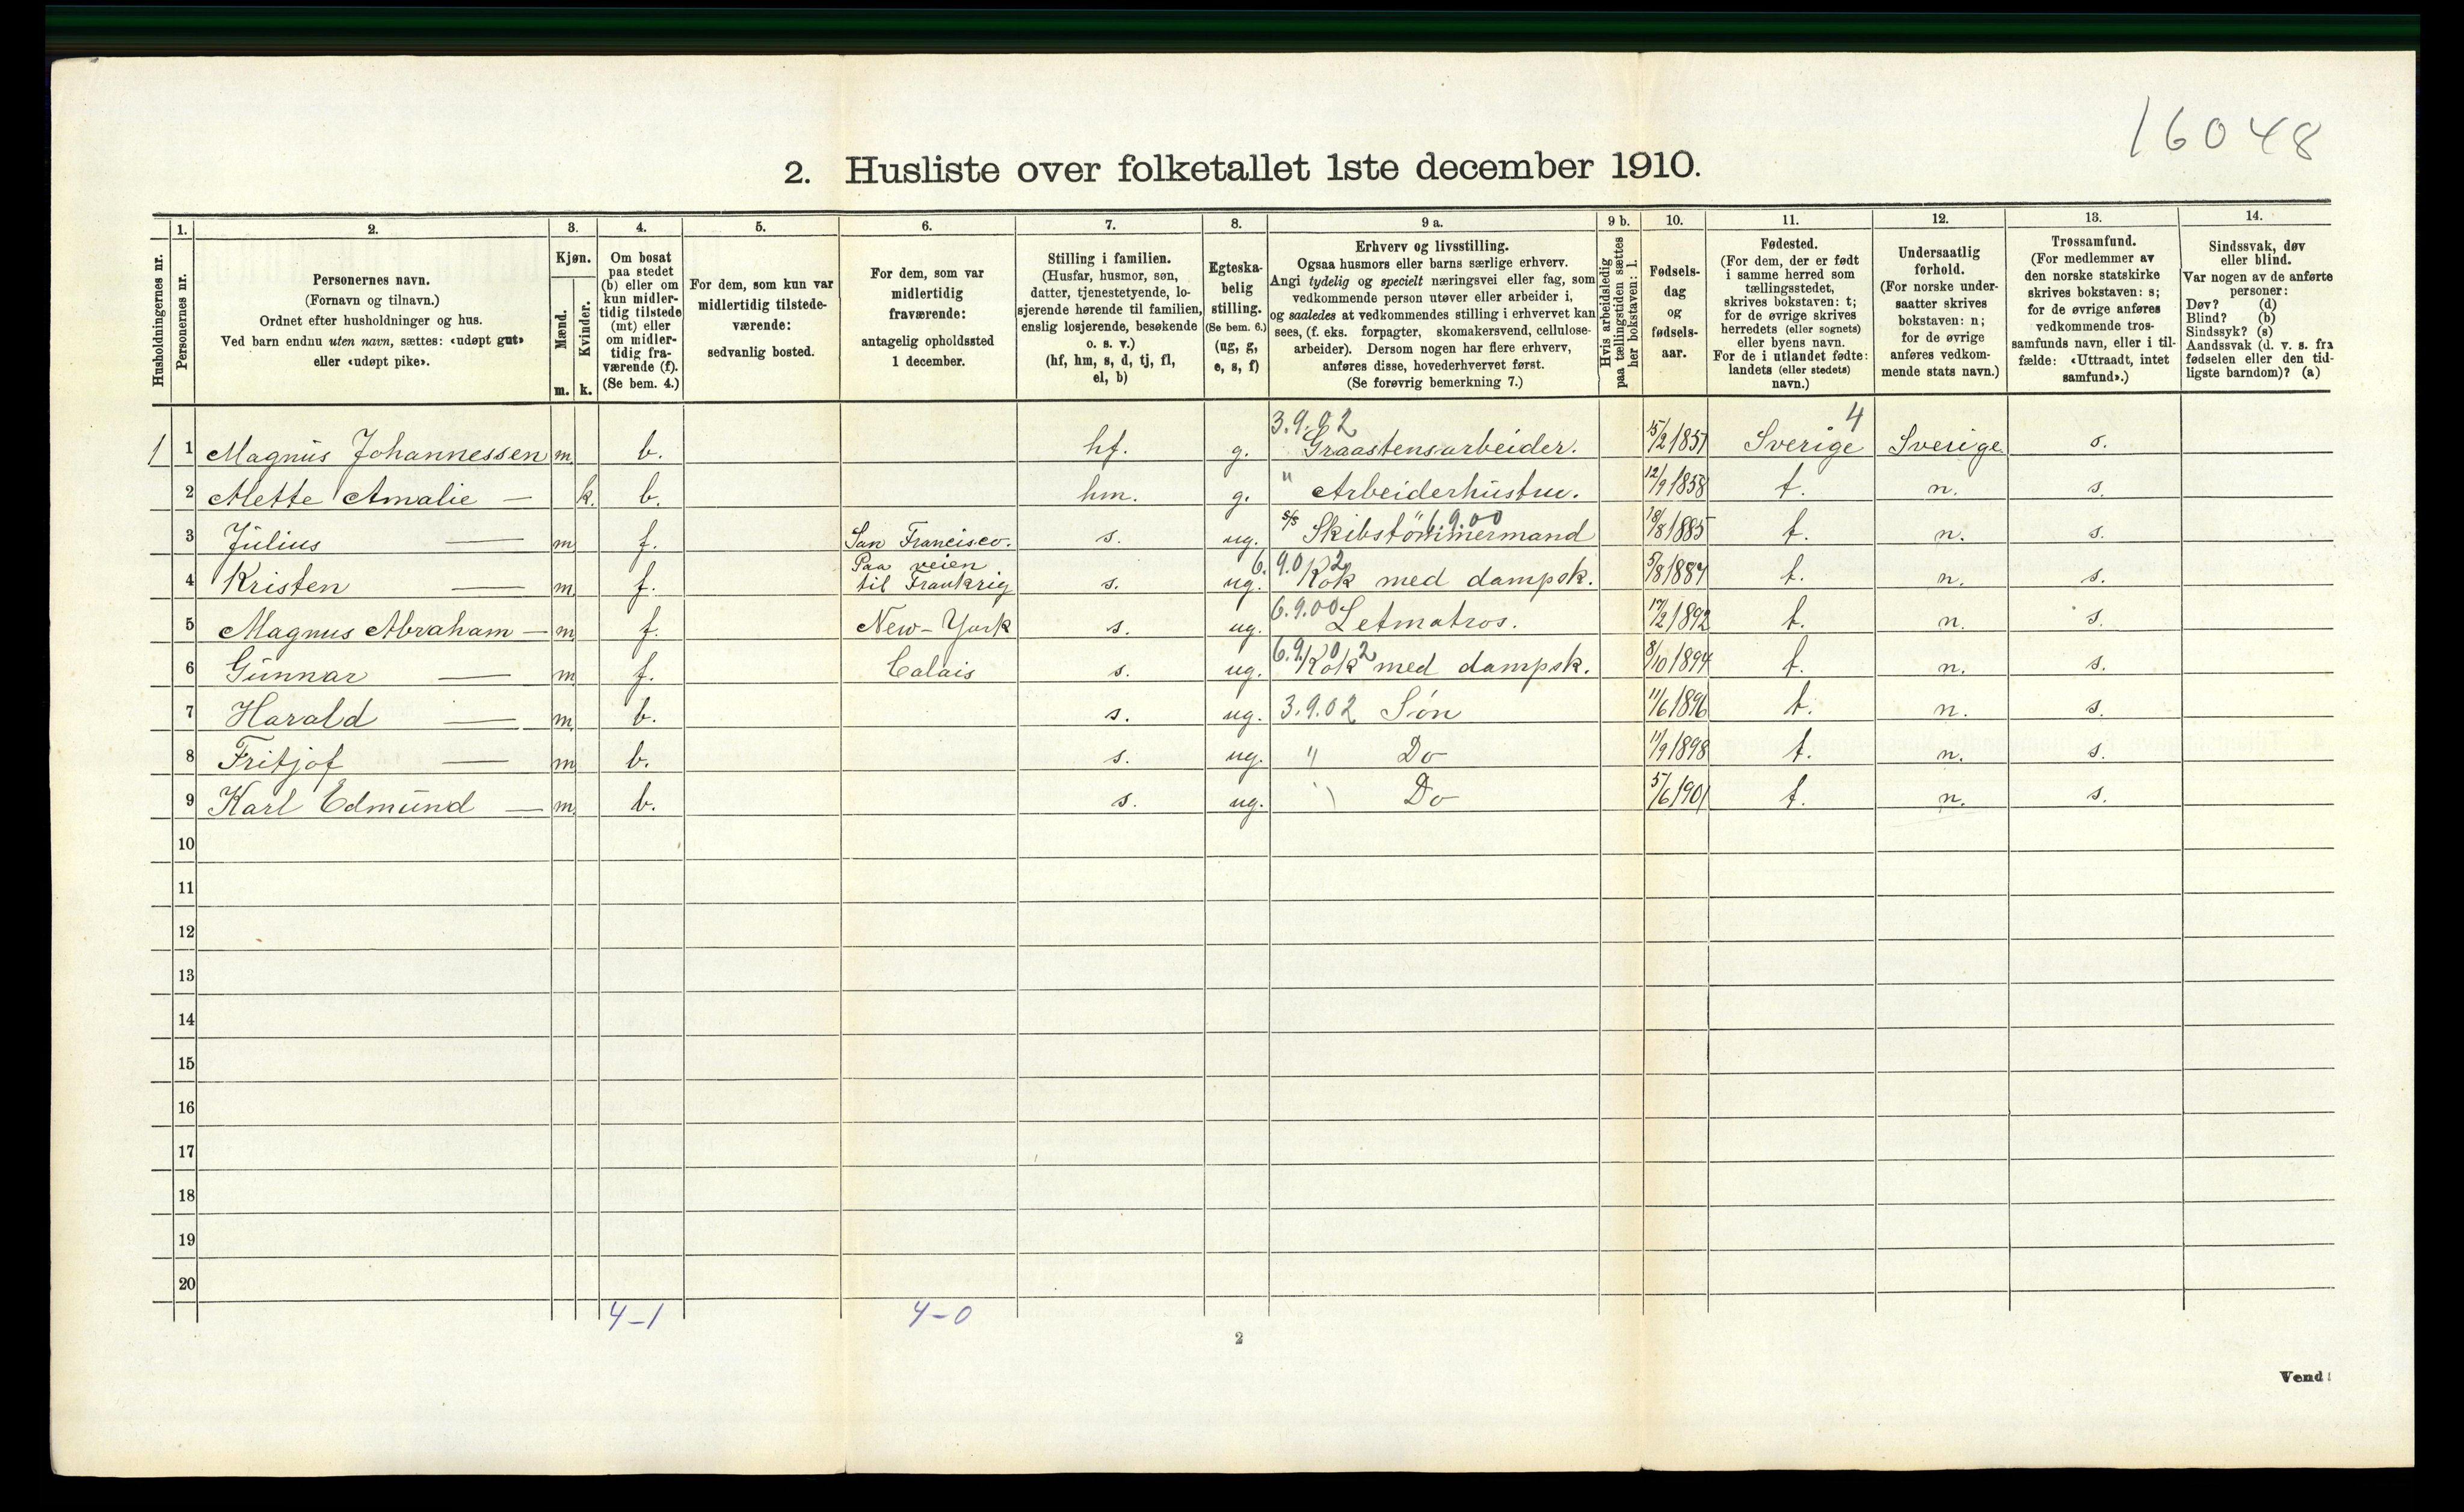 16048
2. Husliste over folketallet 1ste december 1910.
Husholdningernes nr.
1. Personernes nr.
2. Personernes navn.
(Fornavn og tilnavn.)
Ordnet efter husholdninger og hus.
Ved barn endnu uten navn, sættes: «udøpt gut»
eller «udøpt pike».
3. Kjøn.
Mænd. m.
Kvinder. k.
4. Om bosat
paa stedet
(b) eller om
kun midler-
tidig tilstede
(mt) eller
om midler-
tidig fra-
værende (f).
(Se bem. 4.)
5. For dem, som kun var
midlertidig tilstede-
værende:
sedvanlig bosted.
6. For dem, som var
midlertidig
fraværende:
antagelig opholdssted
1 december.
7. Stilling i familien.
(Husfar, husmor, søn,
datter, tjenestetyende, lo-
sjerende hørende til familien,
enslig losjerende, besøkende
o. s. v.)
(hf, hm, s, d, tj, fl,
el, b)
8. Egteska-
belig
stilling.
(Se bem. 6.)
(ug, g,
e, s, f)
9 a. Erhverv og livsstilling.
Ogsaa husmors eller barns særlige erhverv.
Angi tydelig og specielt næringsvei eller fag, som
vedkommende person utøver eller arbeider i,
og saaledes at vedkommendes stilling i erhvervet kan
sees, (f. eks. forpagter, skomakersvend, cellulose-
arbeider). Dersom nogen har flere erhverv,
anføres disse, hovederhvervet først.
(Se forøvrig bemerkning 7.)
9 b. Hvis arbeidsledig
paa tællingstiden sættes
her bokstaven: l.
10. Fødsels-
dag
og
fødsels-
aar.
11. Fødested.
(For dem, der er født
i samme herred som
tællingsstedet,
skrives bokstaven: t;
for de øvrige skrives
herredets (eller sognets)
eller byens navn.
For de i utlandet fødte:
landets (eller stedets)
navn.)
12. Undersaatlig
forhold.
(For norske under-
saatter skrives
bokstaven: n;
for de øvrige
anføres vedkom-
mende stats navn.)
13. Trossamfund.
(For medlemmer av
den norske statskirke
skrives bokstaven: s;
for de øvrige anføres
vedkommende tros-
samfunds navn, eller i til-
fælde: «Uttraadt, intet
samfund».)
14. Sindssvak, døv
eller blind.
Var nogen av de anførte
personer:
Døv? (d)
Blind? (b)
Sindssyk? (s)
Aandssvak (d. v. s. fra
fødselen eller den tid-
ligste barndom)? (a)
3.9.02 4
1 1 Magnus Johannessen m. b. hf. g. Graastensarbeider. 15/2 1851 Sverige Sverige s.
2 Mette Amalie — k. b. hm. g. " Arbeiderhustru. 12/9 1858 t. n. s.
3 Julius — m f. San Francisco. s. ug. s/s Skibstømmermand 6.9.00 18/8 1885 t. n. s.
4 Kristen — m f. Paa veien
til Frankrig s. ug. 6.9.02 Kok med dampsk. 5/8 1887 t. n. s.
5 Magnus Abraham — m f. New-York s. ug. 6.9.00 Letmatros. 17/2 1892 t. n. s.
6 Gunnar — m f. Calais s. ug. 6.9.02 Kok med dampsk. 8/10 1894 t. n. s.
7 Harald — m b. s. ug. 3.9.02 Søn 11/6 1896 t. n. s.
8 Fritjof — m b. s. ug. " Do 11/9 1898 t. n. s.
9 Karl Edmund — m. b. s. ug. " Do 5/6 1901 t. n. s.
10
11
12
13
14
15
16
17
18
19
20
4-1 4-0
2
Vend!